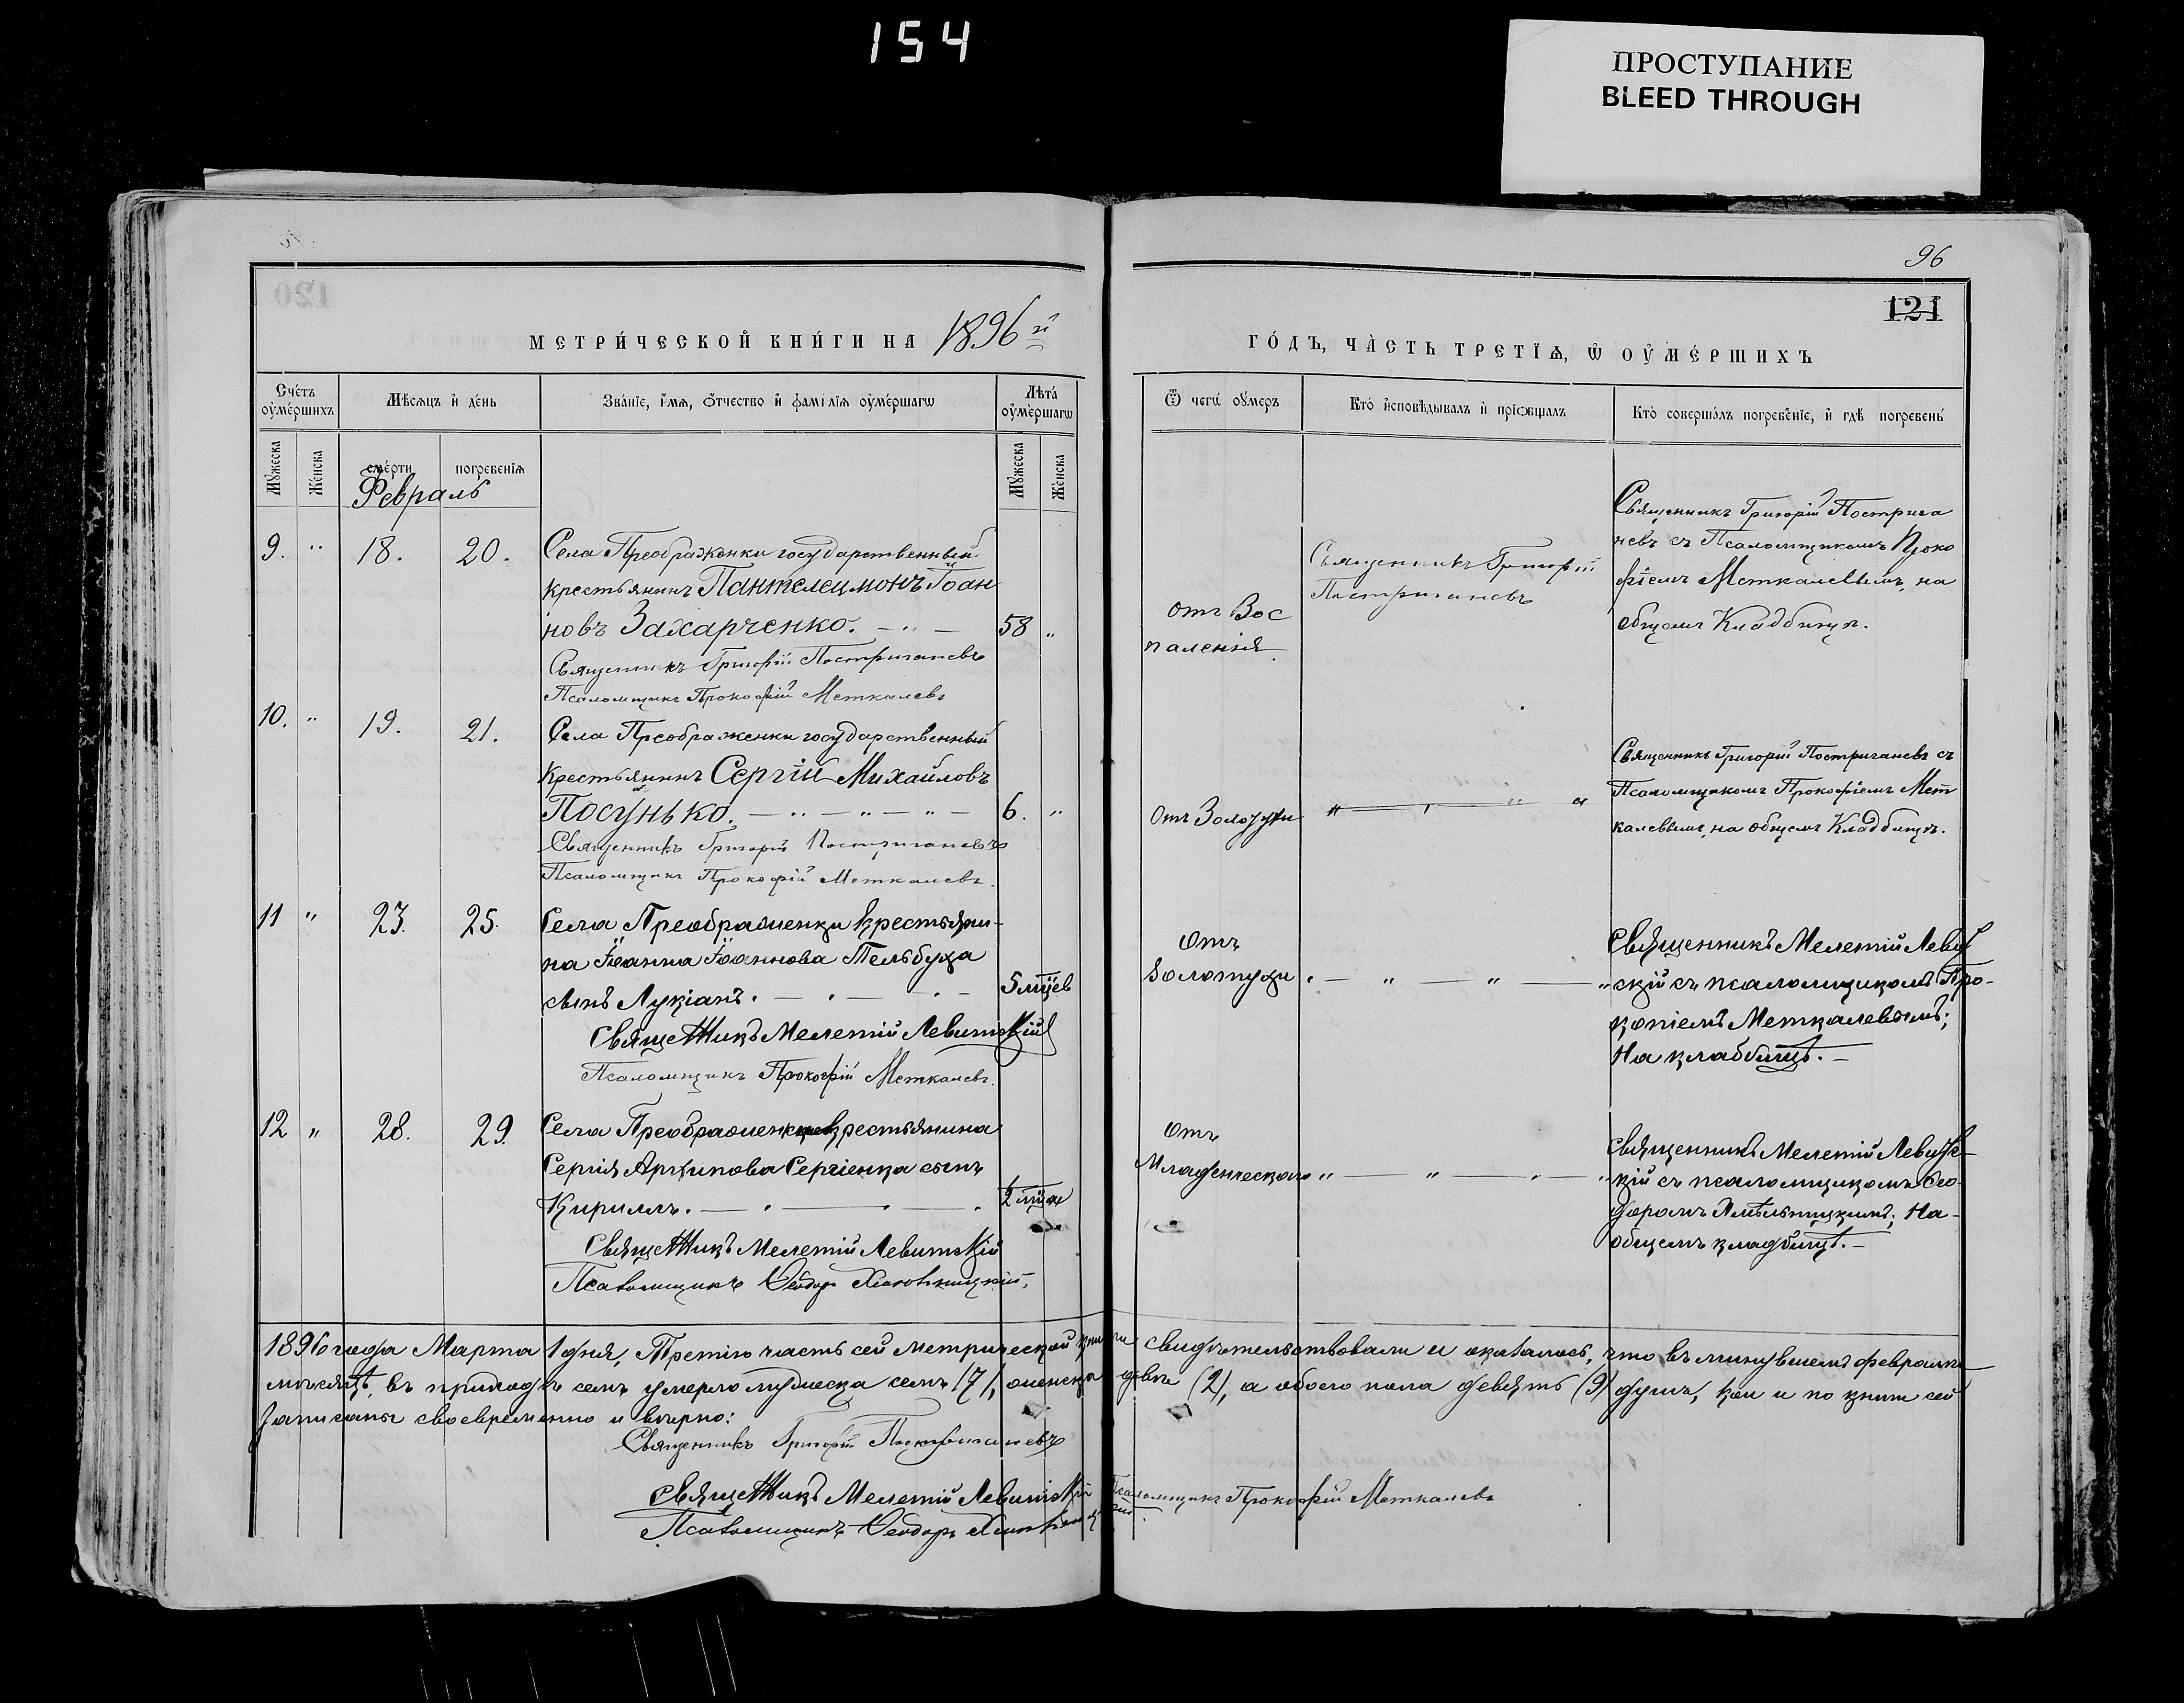 154
ПРОСТУПАНИЕ
BLEED THROUGH
96
120
121
МЕТРИ́ЧЕСКОЙ КНИ́ГИ НА 1896й
ГО́ДЪ, ЧА́СТЬ ТРЕТІѦ, Ѽ ОУ҆МЕ́РШИХЪ
Сче́тъ оу҆ме́ршихъ
Мѣсѧцъ и҆ де́нь
Зва́ніе, и҆мѧ, ѻ҆́тчество и҆ фамі́лїѧ оу҆ме́ршагѡ
Лѣта́ оу҆ме́ршагѡ
Ѿ чегѡ̀ оу҆́меръ
Кто̀ и҆сповѣ́дывалъ и҆ прїѡбща́лъ
Кто̀ соверша́лъ погребе́нїе, и҆ гдѣ̀ погребены̀
Мꙋжеска
Же́нска
сме́рти
погребенїѧ
Мꙋжеска
Же́нска
Февраль
9. " 18. 20.
Села Преображенки государственный
крестьянинъ Пантелеимонъ Іоан
новъ Захарченко. — " —
58 "
Священникъ Григорій Постригачевъ
Псаломщикъ Прокофій Меткалевъ
отъ Вос
паленія.
Священникъ Григорій
Постригачевъ
Священникъ Григорій Постряга
чевъ съ Псаломщикомъ Проко
фіемъ Меткалевымъ, на
общемъ Кладбищѣ.
10. " 19. 21.
Села Преображенки государственный
крестьянинъ Сергій Михайловъ
Посунько. — " — " — " —
6. "
Священникъ Григорій Постригачевъ
Псаломщикъ Прокофій Меткалевъ.
Отъ Золотухи
" — " — " "
Священникъ Григорій Постригачевъ съ
Псаломщикомъ Прокофіемъ Мет
калевымъ, на общемъ Кладбищѣ.
11 " 23. 25.
Села Преображенки крестьяни-
на Іоанна Іоаннова Тельбуха
сынъ Лукіанъ. — . — . —
5 мцев
Священникъ Мелетій Левитскій
Псаломщикъ Прокофій Меткалевъ.
Отъ
Золотухи
. — " — " — "
Священникъ Мелетій Левит
скій съ псаломщикомъ Про-
копіемъ Меткалевымъ;
На кладбищѣ. —
12 " 28. 29.
Села Преображенки крестьянина
Сергія Архипова Сергіенка сынъ
Кириллъ. — . — . — .
2 мца
Священникъ Мелетій Левитскій
Псаломщикъ Ѳеодоръ
Отъ
Младенческаго
" — " — . — "
Священникъ Мелетій Левитс-
кій съ псаломщикомъ Ѳео-
доромъ На-
общемъ кладбищѣ. —
1896 года Марта 1 дня, Третію часть сей метрической книги свидѣтельствовали и оказалось, что въ минувшемъ февралѣ
мѣсяцѣ, въ приходѣ семъ умерло мужеска семь (7), женска двѣ (2), а обоего пола девять (9) душъ, кои и по книгѣ сей
записаны своевременно и вѣрно:
Священникъ Григорій Постригачевъ
Священникъ Мелетій Левитскій
Псаломщикъ Прокофій Меткалевъ
Псаломщикъ Ѳеодоръ